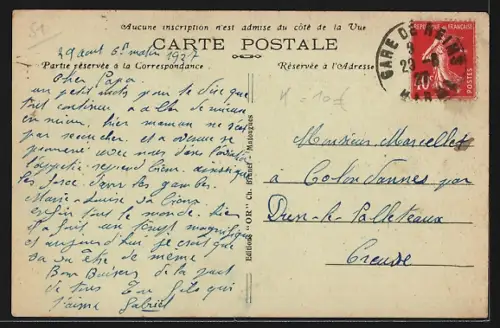 Aucune inscription n'est admise du côté de la Vue
CARTE POSTALE
Partie réservée à la Correspondance.
Réservée à l'Adresse
29 août 6h matin 1937
Cher Papa
un petit mots pour te dire que
tout continue à aller de mieux
en mieux, hier maman ne s'est
pas recoucher, et a
promené avec nous dans
l'appétit reprend bien, ainsi que
les force dans les jambes.
Marie-Louise
enfin tout le monde, hier
il a fait un temps magnifique
et aujourd'hui je crois que
sa va être de même
Bon Baisers de la part
de tous Ton fils qui
t'aime Gabriel
Editions "OR" Ch. Brunel - Matougues
GARE DE REIMS
MARNE
REPUBLIQUE FRANÇAISE
POSTES
Monsieur Marcellet
à Colondannes par
Dun-le-Palleteaux
Creuse